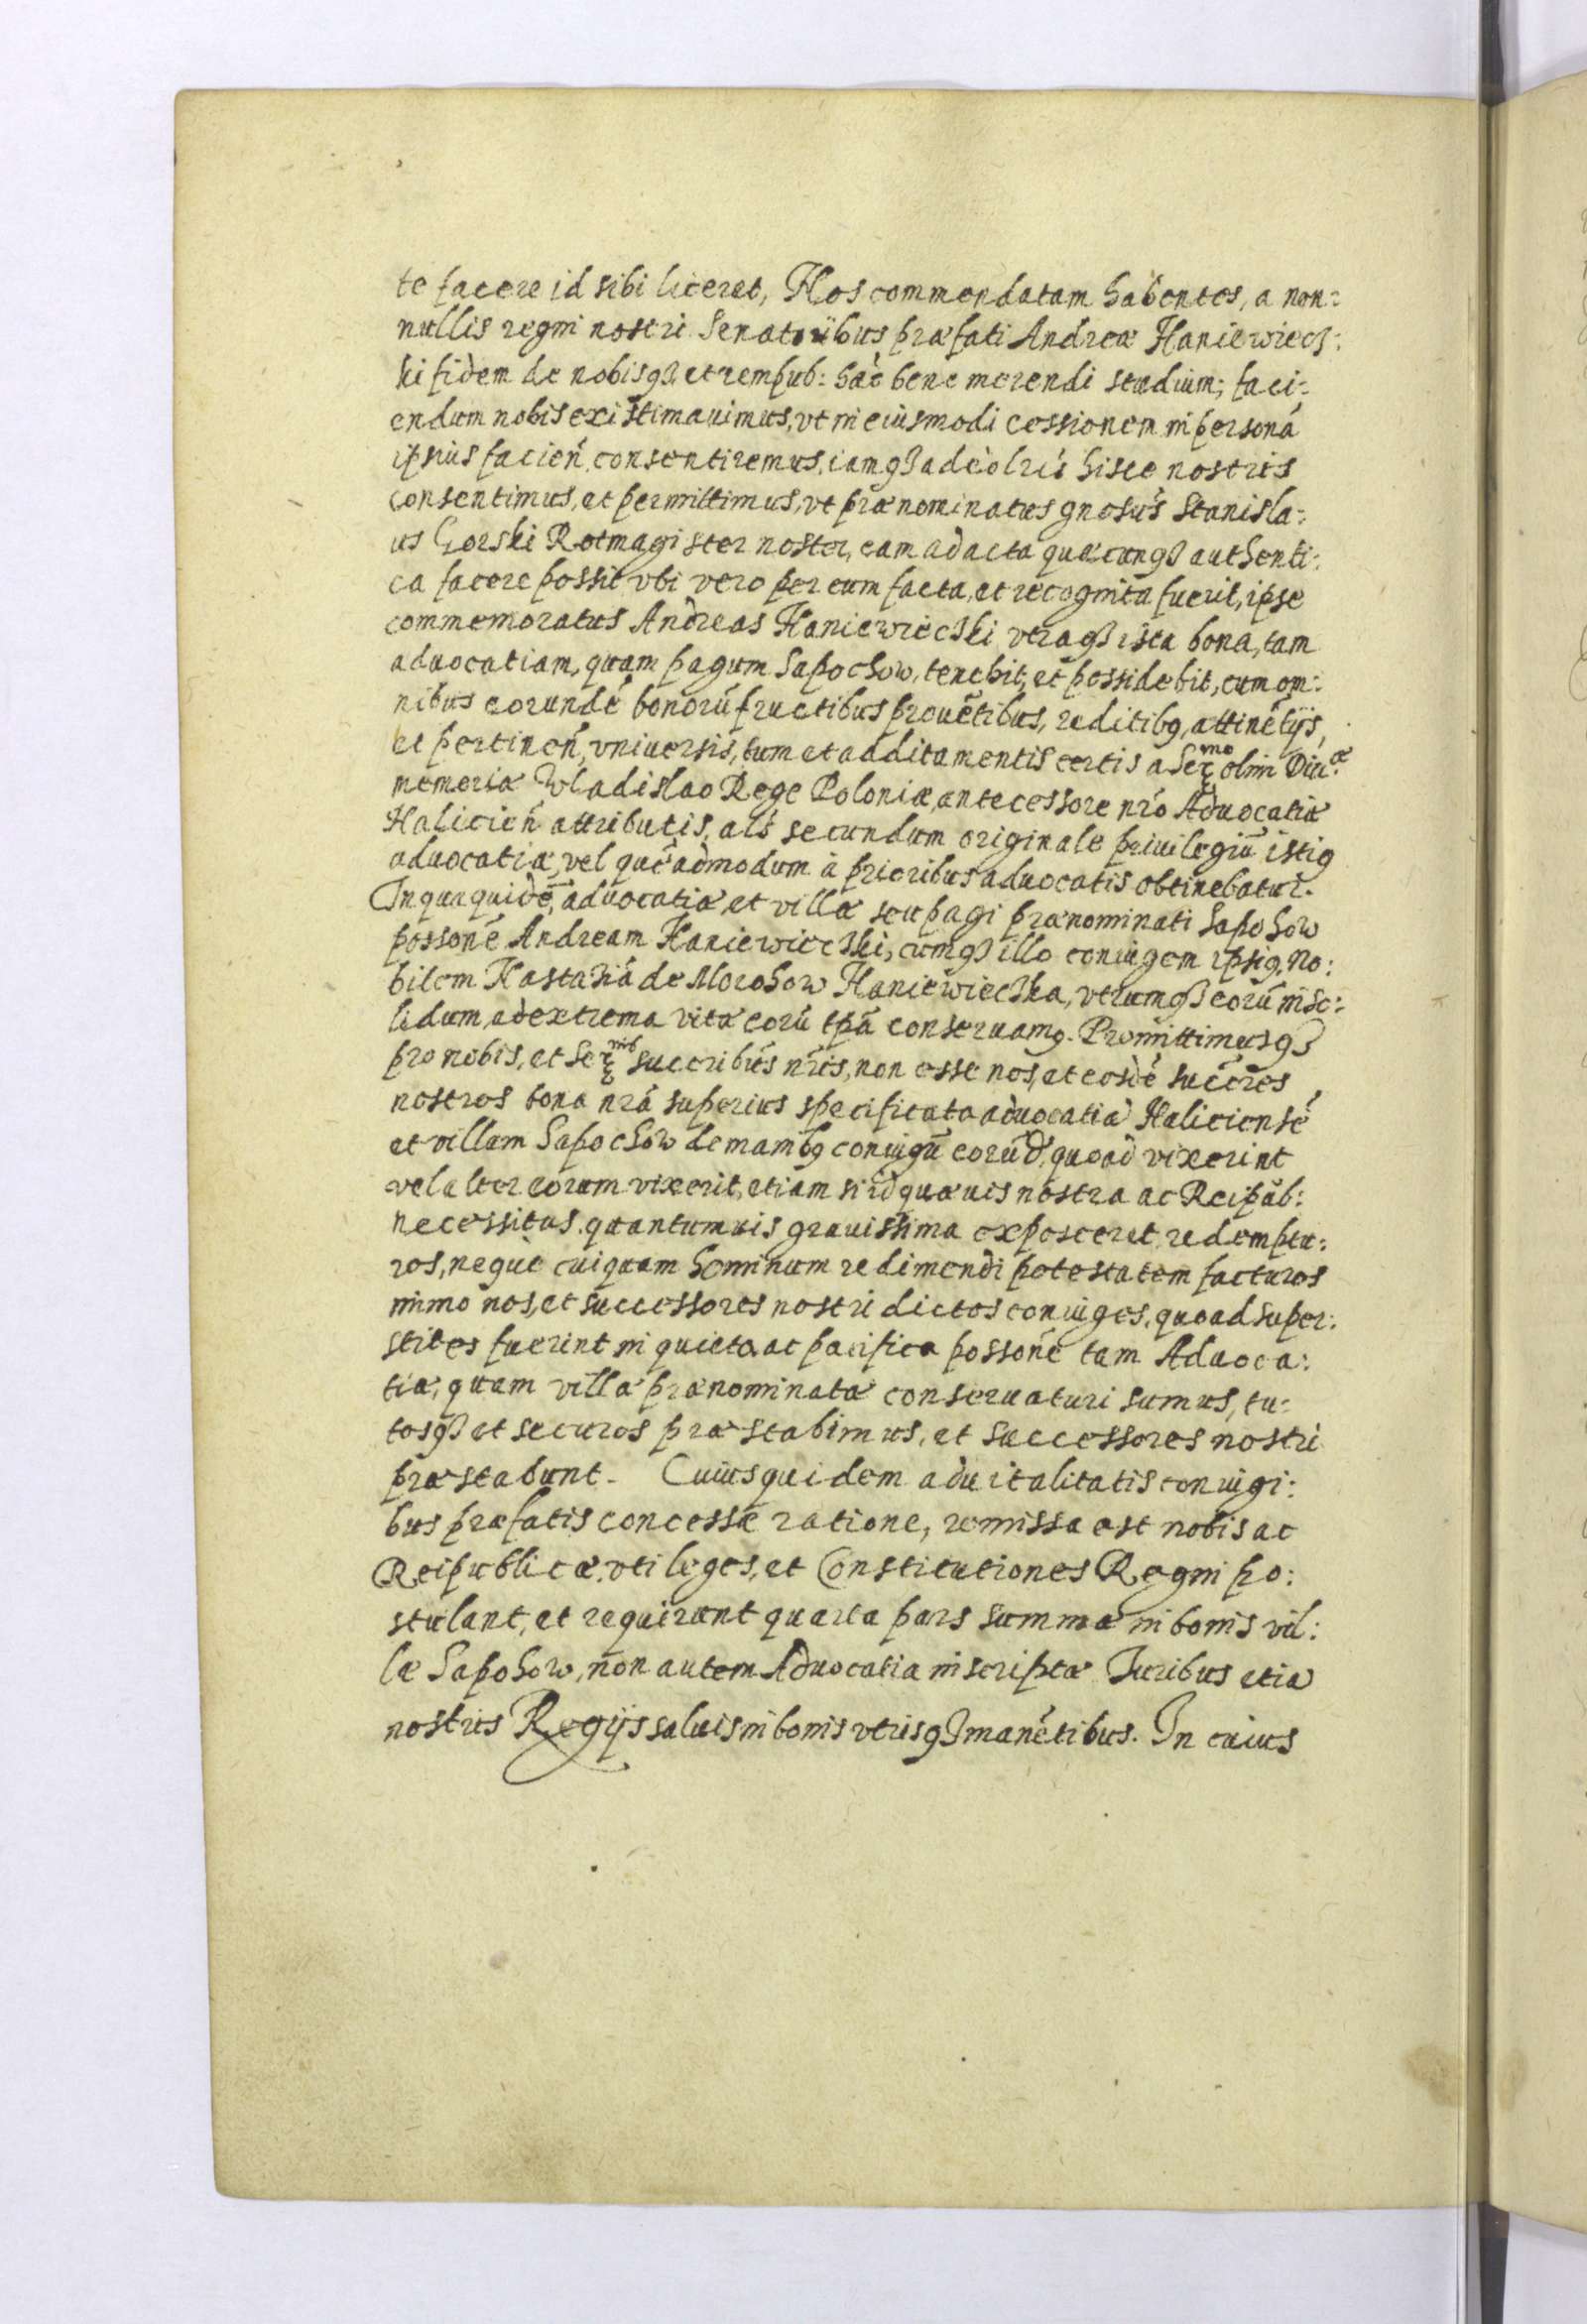 te facere id sibi liceret, Nos commendatam habentes, a non:
nullis regni nostri Senatoribus præfati Andreæ Haniewiecz:
ki fidem de nobisqȝ et rempub: hac bene merendi studium; faci:
endum nobis existimauimus, vt in eiusmodi cessionem in personā
ipsius facień, consentiremus, iamqȝ adeò lrīs hisce nostris
consentimus, et permittimus, vt prænominatus gnosus Stanisla:
us Gorski Rotmagister noster, eam ad acta quæcunqȝ authenti:
ca facere possit vbi vero per eum facta, et recognita fuerit, ipse
commemoratus Andreas Haniewiecȝki vtraqȝ ista bona, tam
aduocatiam, quam pagum Sapochow, tenebit, et possidebit, cum om:
nibus eorundē bonorū fructibus prouētibus, reditibꝯ, attinētijs,
et pertineń, vniuersis, tum et additamentis certis a Sermo olim Diuæ
memoriæ Wladislao Rege Poloniæ, antecessore nr̄o Aduocatiæ
Halicień attributis, als̄ secundum originale priuilegiū istiꝯ
aduocatiæ, vel quēadmodum à prioribus aduocatis obtinebatur.
In qua quidē, aduocatiæ et villæ seu pagi prænominati Sapohow
possonē Andream Haniewiecȝki, cumqȝ illo coniugem ipsiꝯ, No:
bilem Kastaȝiā de Morohow Haniewiecȝka, vtrumqȝ eorū in so:
lidum, ad extrema vitæ eorū tp̄a conseruamꝯ. Promittimusqȝ
pro nobis, et Sermis succribūs nr̄is, non esse nos, et eosdē succr̄es
nostros bona nr̄a superius specificata aduocatiā Haliciensē
et villam Sapochow de manibꝯ coniugū eorūd, quoad vixerint
vel alter eorum vixerit, etiam si id quæuis nostra ac Reipub:
necessitas quantumuis grauissima exposceret, redemptu:
ros, neque cuiquam hominum redimendi potestatem facturos
immo nos, et successores nostri dictos coniuges, quoad super:
stites fuerint in quieta, ac pacifica possonē tam Aduoca:
tiæ, quam villæ prænominatæ conseruaturi sumus, tu:
tosqȝ et securos præstabimus, et successores nostri
præstabunt. Cuius quidem aduitalitatis coniugi:
bus præfatis concessæ ratione, remissa est nobis ac
Reipublicæ, vti leges, et Constitutiones Regni po:
stulant, et requirunt quarta pars summæ in bonis vil:
læ Sapohow, non autem Aduocatia inscriptæ Iuribus etiā
nostris Regijs saluis in bonis vtrisqȝ manētibus. In cuius